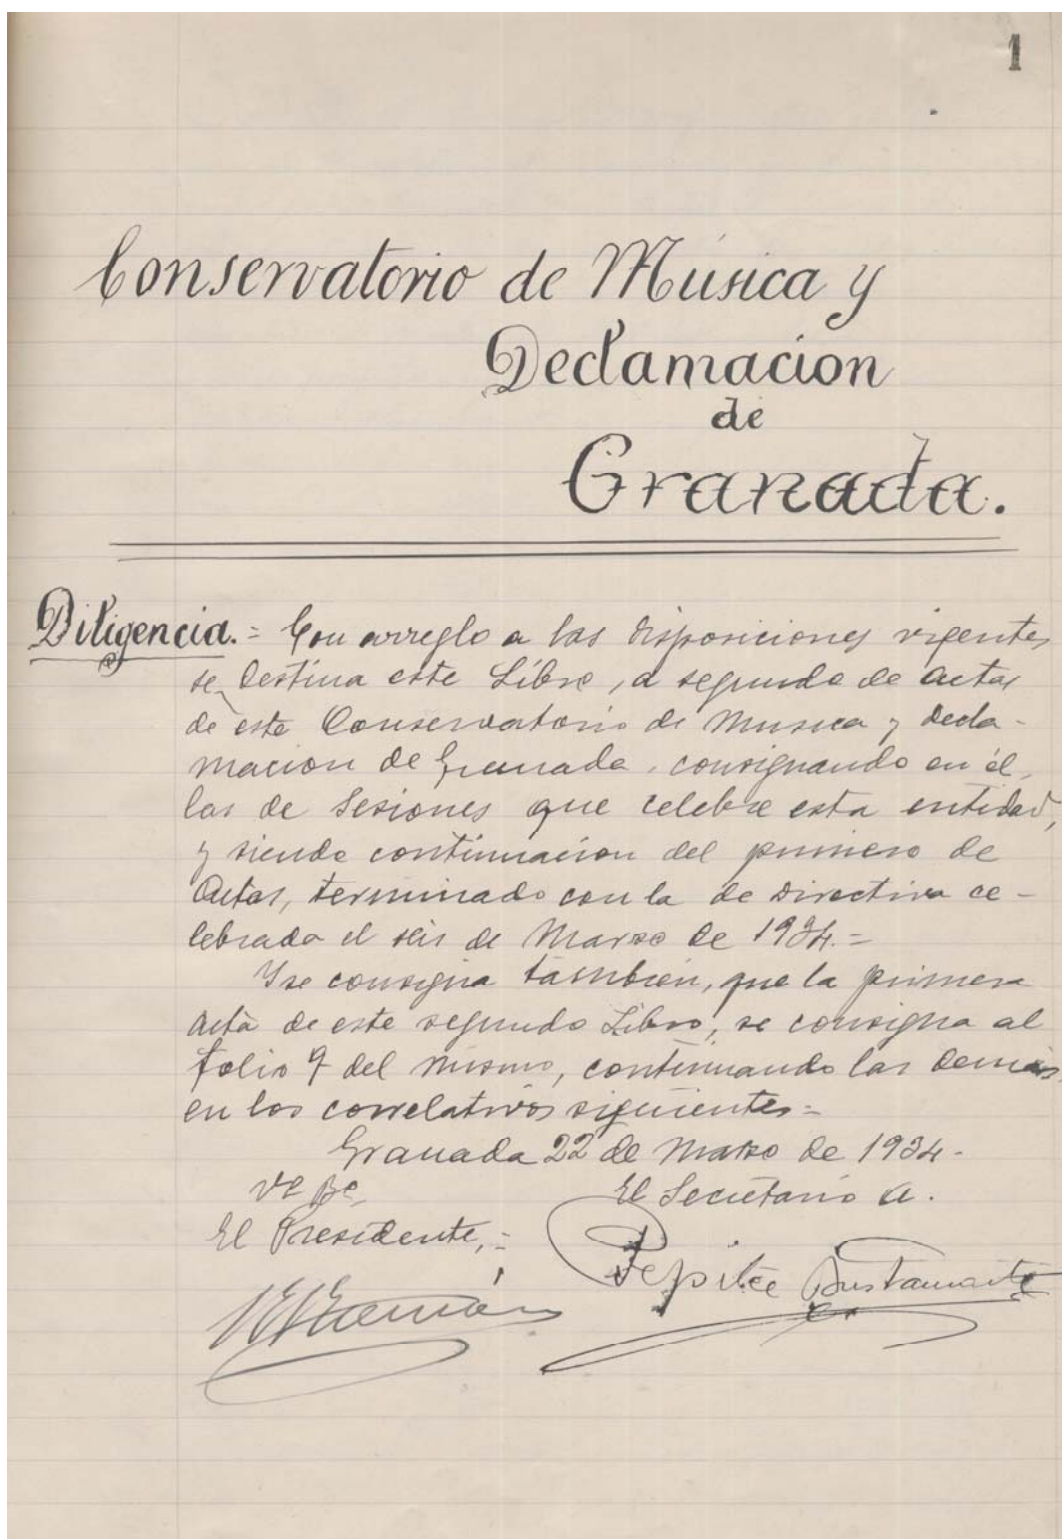 1
Conservatorio de Música y
Declamacion
de
Granada.
Diligencia.= Con arreglo a las disposiciones vigentes
se destina este Libro, a segundo de Actas
de este Conservatorio de Musica y Decla-
macion de Granada, consignando en él,
las de Sesiones que celebre esta entidad,
y siendo continuacion del primero de
Actas, terminado con la de Directiva ce-
lebrada el seis de Marzo de 1934.=
Y se consigna tambien, que la primera
acta de este segundo Libro, se consigna al
folio 9 del mismo, continuando las demás
en los correlativos siguientes=
Granada 22 de Marzo de 1934.-
Vº Bº
El Secretario a.
El Presidente,=
Pepita Bustamante